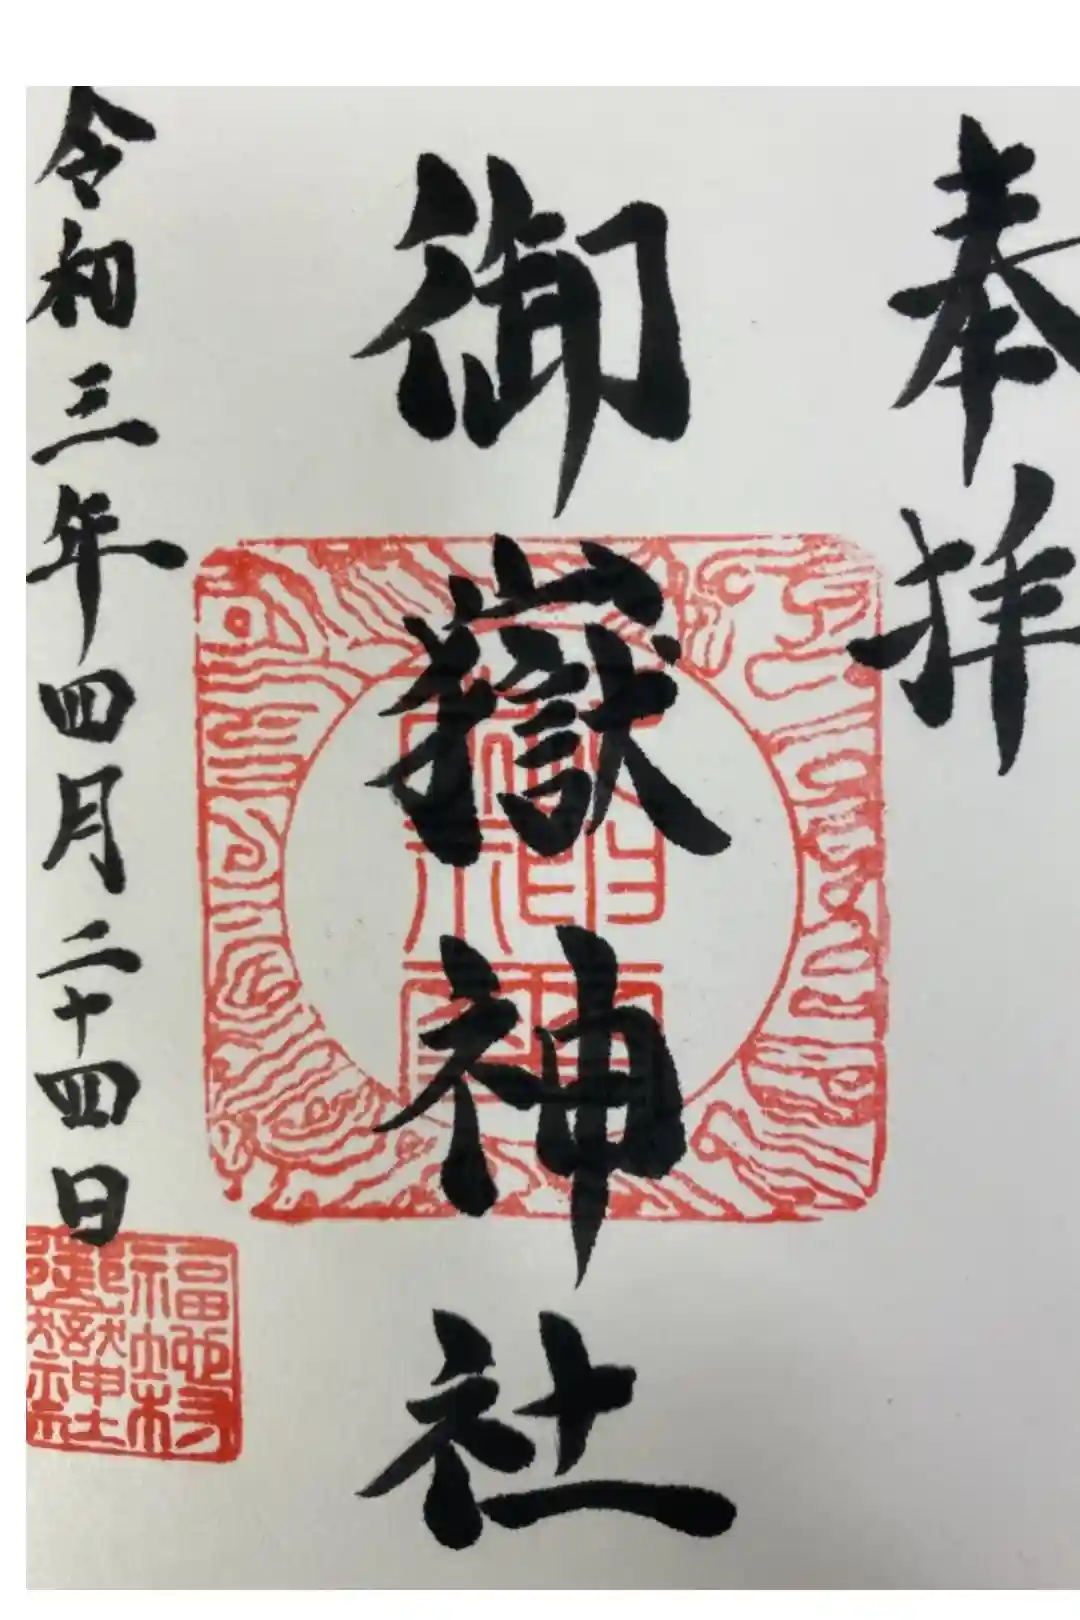 奉拝
御嶽神社
令和三年四月二十四日